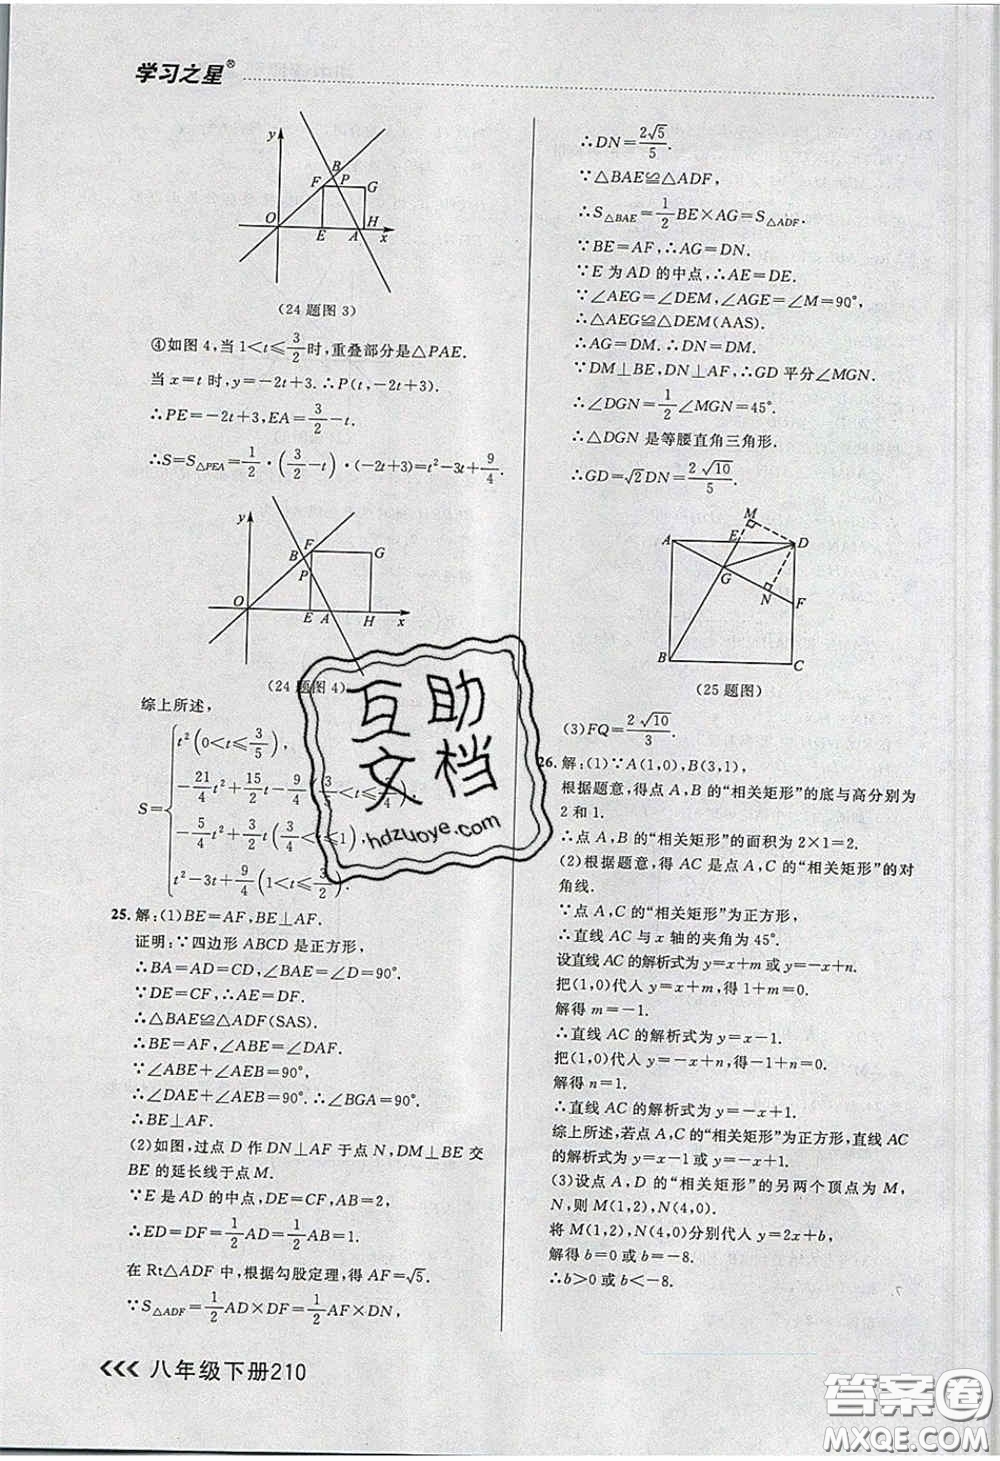 学习之星®
y
B
F
P
G
O
E
A
H
x
(24题图3)
④如图4,当1<t≤3/2时,重叠部分是△PAE.
当x=t时,y=-2t+3.∴P(t,-2t+3).
∴PE=-2t+3,EA=3/2-t.
∴S=S△PEA=1/2·(3/2-t)·(-2t+3)=t²-3t+9/4.
y
F
B
G
P
O
E
A
H
x
(24题图4)
综上所述,
t²(0<t≤3/5),
S= -21/4t²+15/2t-9/4(3/5<t≤3/4),
-5/4t²+3/2t(3/4<t≤1),
t²-3t+9/4(1<t≤3/2).
25.解:(1)BE=AF,BE⊥AF.
证明:∵四边形ABCD是正方形,
∴BA=AD=CD,∠BAE=∠D=90°.
∵DE=CF,∴AE=DF.
∴△BAE≌△ADF(SAS).
∴BE=AF,∠ABE=∠DAF.
∵∠ABE+∠AEB=90°,
∴∠DAE+∠AEB=90°.∴∠BGA=90°.
∴BE⊥AF.
(2)如图,过点D作DN⊥AF于点N,DM⊥BE交
BE的延长线于点M.
∵E是AD的中点,DE=CF,AB=2,
∴ED=DF=1/2AD=1/2AB=1.
在Rt△ADF中,根据勾股定理,得AF=√5.
∵S△ADF=1/2AD×DF=1/2AF×DN,
∴DN=2√5/5.
∵△BAE≌△ADF,
∴S△BAE=1/2BE×AG=S△ADF.
∵BE=AF,∴AG=DN.
∵E为AD的中点,∴AE=DE.
∵∠AEG=∠DEM,∠AGE=∠M=90°,
∴△AEG≌△DEM(AAS).
∴AG=DM.∴DN=DM.
∵DM⊥BE,DN⊥AF,∴GD平分∠MGN.
∴∠DGN=1/2∠MGN=45°.
∴△DGN是等腰直角三角形.
∴GD=√2DN=2√10/5.
M
A
E
D
G
N
F
B
C
(25题图)
(3)FQ=2√10/3.
26.解:(1)∵A(1,0),B(3,1),
根据题意,得点A,B的“相关矩形”的底与高分别为
2和1.
∴点A,B的“相关矩形”的面积为2×1=2.
(2)根据题意,得AC是点A,C的“相关矩形”的对
角线.
∵点A,C的“相关矩形”为正方形,
∴直线AC与x轴的夹角为45°.
设直线AC的解析式为y=x+m或y=-x+n.
把(1,0)代入y=x+m,得1+m=0.
解得m=-1.
∴直线AC的解析式为y=x-1.
把(1,0)代入y=-x+n,得-1+n=0.
解得n=1.
∴直线AC的解析式为y=-x+1.
综上所述,若点A,C的“相关矩形”为正方形,直线AC
的解析式为y=x-1或y=-x+1.
(3)设点A,D的“相关矩形”的另两个顶点为M,
N,则M(1,2),N(4,0).
将M(1,2),N(4,0)分别代入y=2x+b,
解得b=0或b=-8.
∴b>0或b<-8.
互助
文档
hdzuoye.com
八年级下册210
答案卷
MXQE.COM